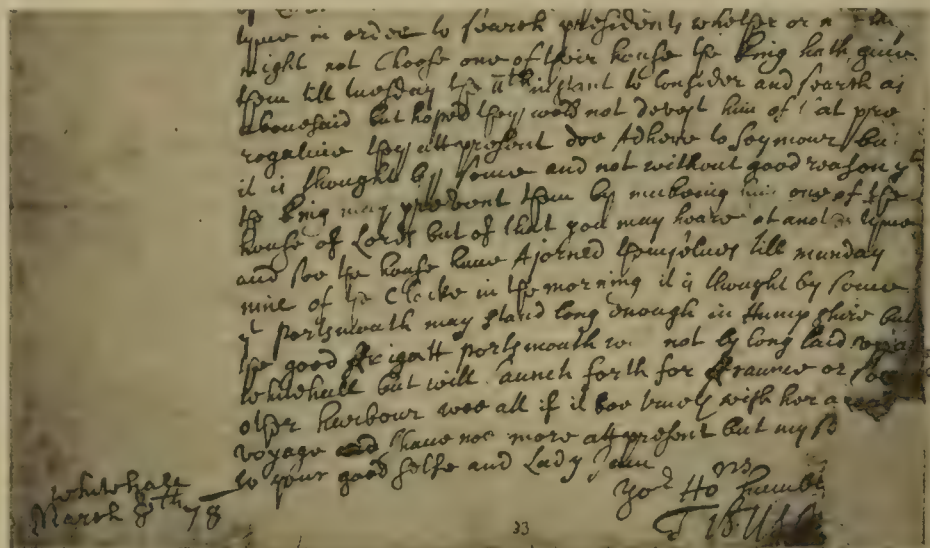 tyme in order to search presidents whether or
might not Choose one of their house the king hath give
them till tuesday the 11th instant to consider and search as
abovesaid but hoped they would not devest him of that pre
rogative they att present doe Adhere to Seymour bu
it is thought by some and not without good reason yt
the king may prevent them by makeing him one of the
house of Lords but of that you may heare at another tyme
and soe the house have Ajorned themselves till munday
nine of the Clocke in the morning it is thought by some
yt portsmouth may stand long enough in Hampshire but
the good ffrigatt portsmouth w not by long laid
Whitehall but will launch forth for ffraunce or some
other harbour wee all if it bee truely wish her a
voyage I have noe more att present but my
to your good selfe and Lady I am
Whitehall
March 8th 78
yor Honrs humble
33